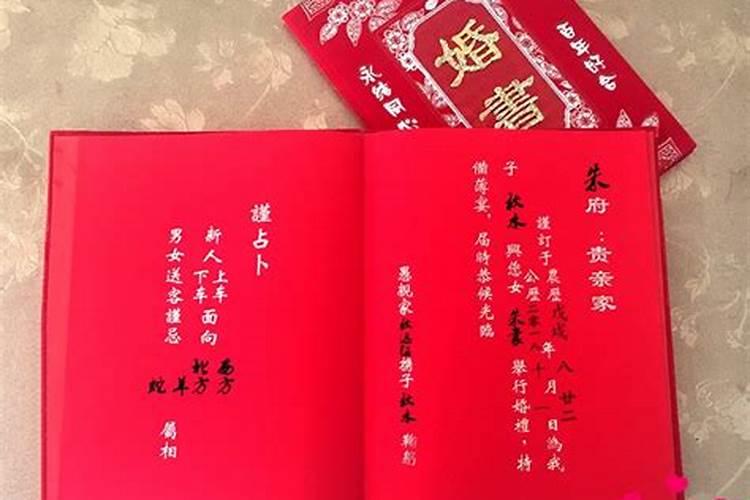 婚書
永结同心
百年好合
朱府：贵亲家
謹訂于農歷戊戌年八月廿二日為我
公歷二零一八 十 一
子秋木與您女朱 舉行婚禮，特
備薄宴，届時恭候光臨
愚親家秋 携子秋木 鞠躬
謹占卜
新人上車面向西方
下車 北方
男女送客謹忌羊蛇屬相